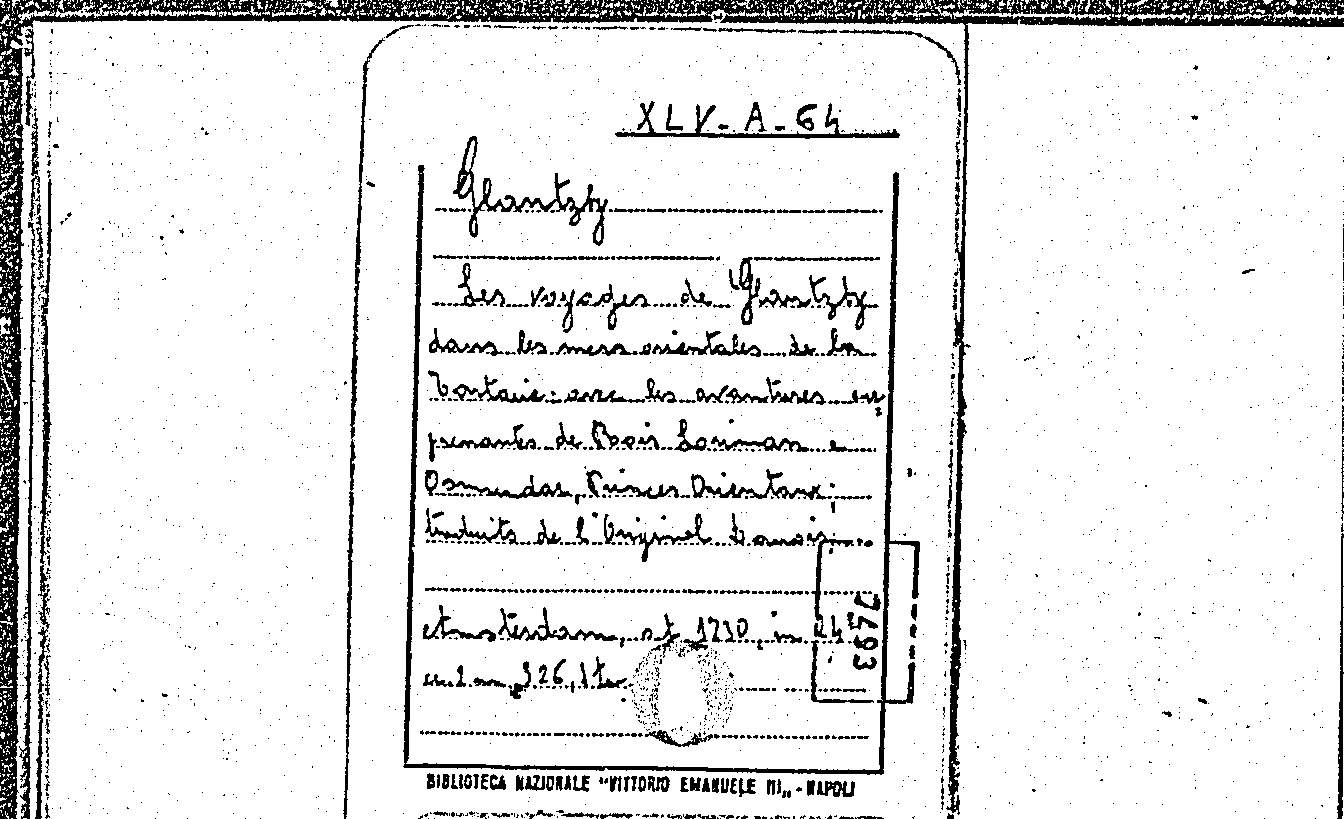 XLV-A-64
Glantzby
Les voyages de Glantzby
dans les mers orientales de la
Tartarie: avec les avantures sur
prenantes de Rois Loriman e
Osmundar, Princes Orientaux;
traduits de l'Original Danois...
Amsterdam, s.t 1730, in 24°
126, 1 tav
7493
BIBLIOTECA NAZIONALE "VITTORIO EMANUELE III" - NAPOLI